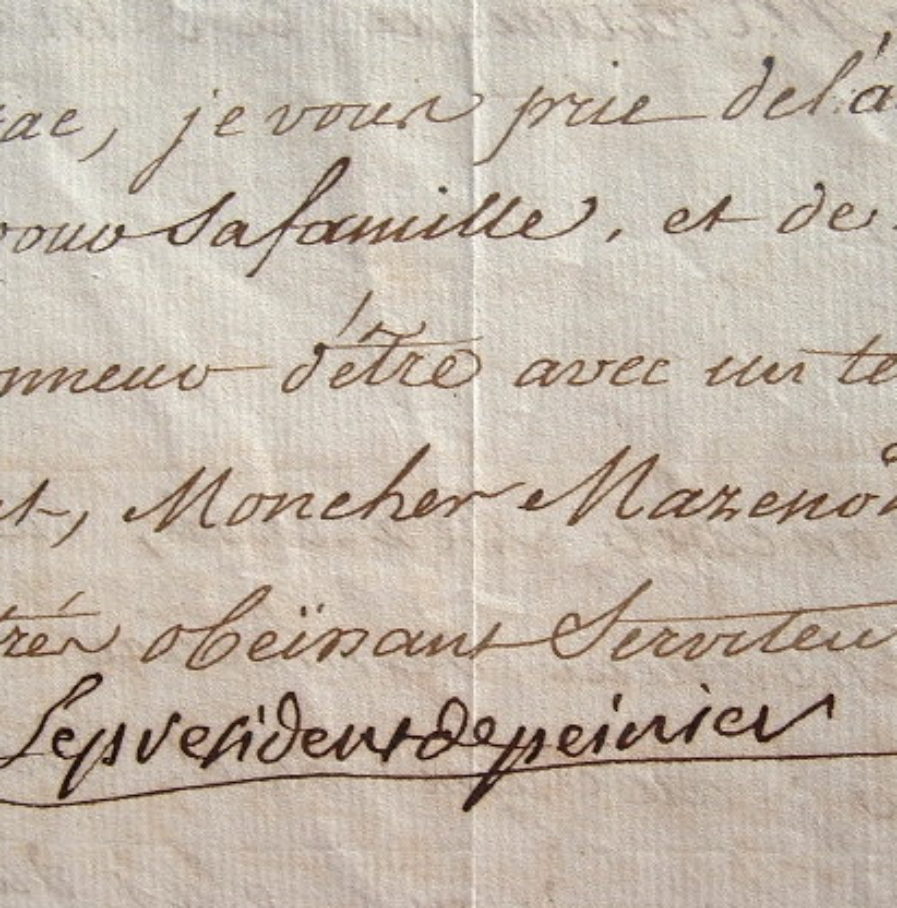 ac, je vous prie de l'a
vous sa famille, et de
onneur d'étre avec un te
t, Mon cher Mazenod
trés obeïssant Serviteu
Le president de peinier